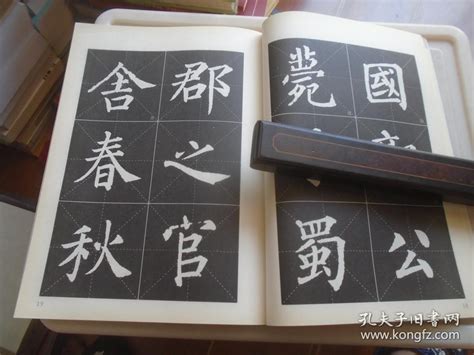 國
公
薨
蜀
郡之官
舍春秋
19
孔夫子旧书网
www.kongfz.com